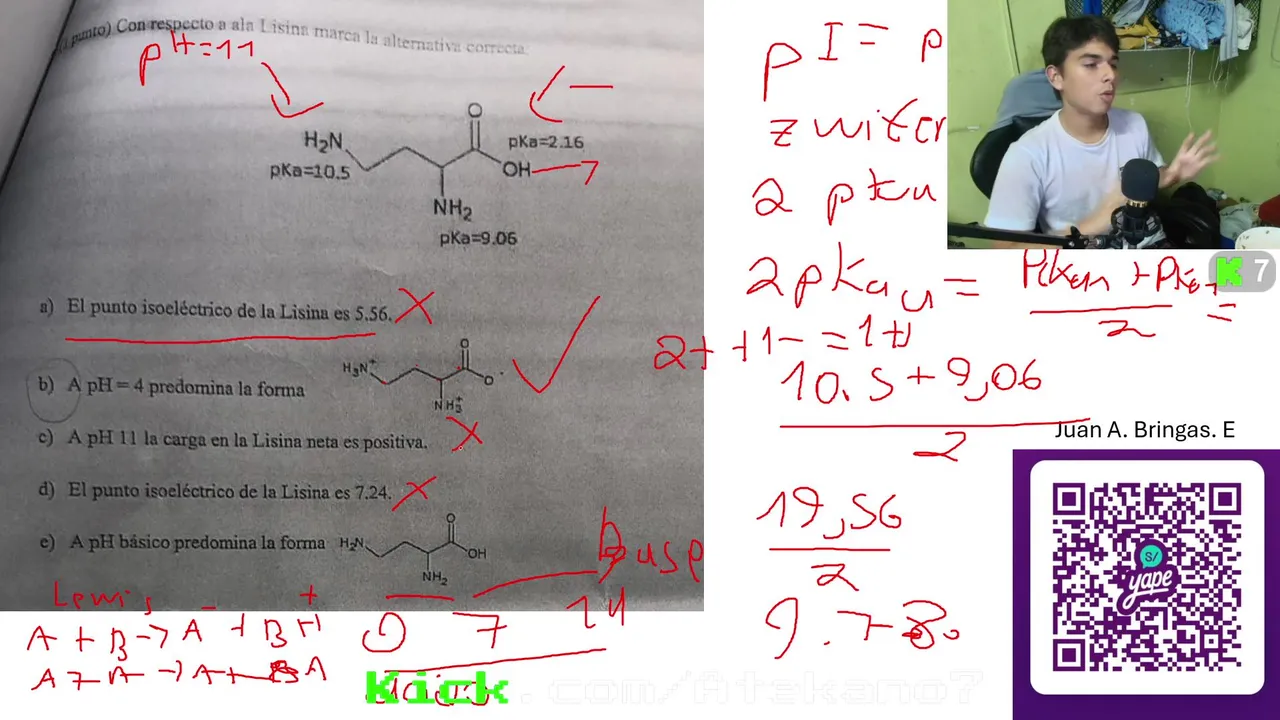 punto) Con respecto a ala Lisina marca la alternativa correcta.
pH=11
O
H₂N
pKa=10.5
pKa=2.16
OH
NH₂
pKa=9.06
a) El punto isoeléctrico de la Lisina es 5.56.
b) A pH = 4 predomina la forma
H₃N⁺
O
O⁻
NH₃⁺
c) A pH 11 la carga en la Lisina neta es positiva.
d) El punto isoeléctrico de la Lisina es 7.24.
e) A pH básico predomina la forma
H₂N
O
OH
NH₂
Lewis
A + B → A⁻ + BH⁺
0 7 14
pI = p
zwiter
2 pka
2 pka
2+ +1- = 1+
10.5 + 9,06
2
19,56
2
9.78
K 7
Juan A. Bringas. E
S/
yape
Kick.com/Atekano7